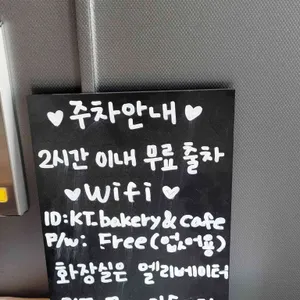 ♥ 주차안내 ♥
2시간 이내 무료 출차
♥ Wifi ♥
ID: KT_bakery & cafe
P/w: Free (없어용)
화장실은 엘리베이터